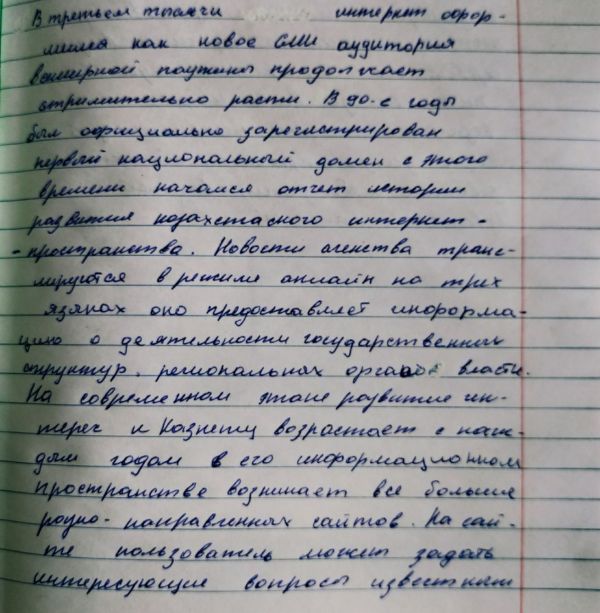 В третьем тысячи интернет офор-
мился как новое СМИ аудитория
всемирной паутины продолжает
стримительно расти. В 90-е годы
был официально зарегистрирован
первый национальный домен с этого
времени начался отчет истории
развития казахстаского интернет-
-пространства. Новости агенства транс-
лируются в режиме онлайн на трех
языках оно предоставляет информа-
цию о деятельности государственных
структур, региональных органов власти.
На современном этапе развитие ин-
терес к Казнету возрастает с каж-
дым годом в его информационном
пространстве возникает все больше
разно-направленных сайтов. На сай-
те пользователь может задать
интересующие вопросы известным